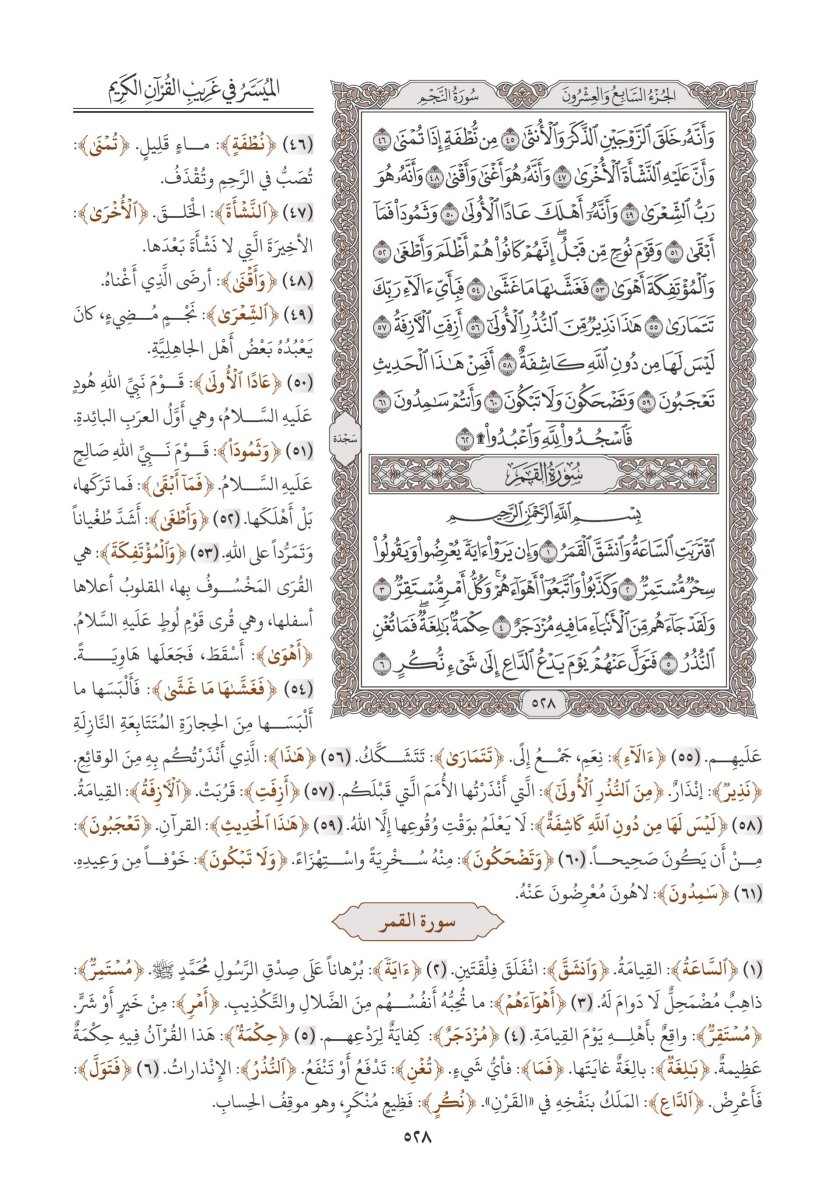 الميسر في غريب القرآن الكريم
الجزء السابع والعشرون
سورة النجم
وَأَنَّهُۥ خَلَقَ ٱلزَّوۡجَيۡنِ ٱلذَّكَرَ وَٱلۡأُنثَىٰ ٤٥ مِن نُّطۡفَةٍ إِذَا تُمۡنَىٰ ٤٦
وَأَنَّ عَلَيۡهِ ٱلنَّشۡأَةَ ٱلۡأُخۡرَىٰ ٤٧ وَأَنَّهُۥ هُوَ أَغۡنَىٰ وَأَقۡنَىٰ ٤٨ وَأَنَّهُۥ هُوَ
رَبُّ ٱلشِّعۡرَىٰ ٤٩ وَأَنَّهُۥٓ أَهۡلَكَ عَادًا ٱلۡأُولَىٰ ٥٠ وَثَمُودَاْ فَمَآ
أَبۡقَىٰ ٥١ وَقَوۡمَ نُوحٖ مِّن قَبۡلُۖ إِنَّهُمۡ كَانُواْ هُمۡ أَظۡلَمَ وَأَطۡغَىٰ ٥٢
وَٱلۡمُؤۡتَفِكَةَ أَهۡوَىٰ ٥٣ فَغَشَّىٰهَا مَا غَشَّىٰ ٥٤ فَبِأَيِّ ءَالَآءِ رَبِّكَ
تَتَمَارَىٰ ٥٥ هَٰذَا نَذِيرٞ مِّنَ ٱلنُّذُرِ ٱلۡأُولَىٰٓ ٥٦ أَزِفَتِ ٱلۡأٓزِفَةُ ٥٧
لَيۡسَ لَهَا مِن دُونِ ٱللَّهِ كَاشِفَةٌ ٥٨ أَفَمِنۡ هَٰذَا ٱلۡحَدِيثِ
تَعۡجَبُونَ ٥٩ وَتَضۡحَكُونَ وَلَا تَبۡكُونَ ٦٠ وَأَنتُمۡ سَٰمِدُونَ ٦١
فَٱسۡجُدُواْۤ لِلَّهِۤ وَٱعۡبُدُواْ۩ ٦٢
سجدة
سُورَةُ القَمَر
بِسۡمِ ٱللَّهِ ٱلرَّحۡمَٰنِ ٱلرَّحِيمِ
ٱقۡتَرَبَتِ ٱلسَّاعَةُ وَٱنشَقَّ ٱلۡقَمَرُ ١ وَإِن يَرَوۡاْ ءَايَةٗ يُعۡرِضُواْ وَيَقُولُواْ
سِحۡرٞ مُّسۡتَمِرّٞ ٢ وَكَذَّبُواْ وَٱتَّبَعُوٓاْ أَهۡوَآءَهُمۡۚ وَكُلُّ أَمۡرٖ مُّسۡتَقِرّٞ ٣
وَلَقَدۡ جَآءَهُم مِّنَ ٱلۡأَنۢبَآءِ مَا فِيهِ مُزۡدَجَرٌ ٤ حِكۡمَةُۢ بَٰلِغَةٞۖ فَمَا تُغۡنِ
ٱلنُّذُرُ ٥ فَتَوَلَّ عَنۡهُمۡۘ يَوۡمَ يَدۡعُ ٱلدَّاعِ إِلَىٰ شَيۡءٖ نُّكُرٍ ٦
٥٢٨
(٤٦) ﴿نُطْفَةٍ﴾: ماءٍ قَلِيلٍ. ﴿تُمْنَىٰ﴾:
تُصَبُّ في الرَّحِمِ وتُقْذَفُ.
(٤٧) ﴿ٱلنَّشْأَةَ﴾: الخَلقَ. ﴿ٱلْأُخْرَىٰ﴾:
الأخِيرَةَ الَّتِي لا نَشْأَةَ بَعْدَها.
(٤٨) ﴿وَأَقْنَىٰ﴾: أرضَى الَّذِي أَغْناهُ.
(٤٩) ﴿ٱلشِّعْرَىٰ﴾: نَجْمٍ مُضِيءٍ، كانَ
يَعْبُدُهُ بَعْضُ أَهْلِ الجاهِلِيَّةِ.
(٥٠) ﴿عَادًا ٱلْأُولَىٰ﴾: قَوْمَ نَبِيِّ اللهِ هُودٍ
عَلَيهِ السَّلامُ، وهي أَوَّلُ العرَبِ البائِدةِ.
(٥١) ﴿وَثَمُودَاْ﴾: قَوْمَ نَبِيِّ اللهِ صَالِحٍ
عَلَيهِ السَّلامُ. ﴿فَمَآ أَبْقَىٰ﴾: فما تَرَكَها،
بَلْ أَهْلَكَها. (٥٢) ﴿وَأَطْغَىٰ﴾: أَشَدَّ طُغْياناً
وَتَمَرُّداً على اللهِ. (٥٣) ﴿وَٱلْمُؤْتَفِكَةَ﴾: هي
القُرَى المَخْسُوفُ بِها، المَقلوبُ أعلاها
أسفلها، وهي قُرى قَوْمِ لُوطٍ عَلَيهِ السَّلامُ.
﴿أَهْوَىٰ﴾: أَسْقَطَ، فَجَعَلَها هَاوِيَةً.
(٥٤) ﴿فَغَشَّىٰهَا مَا غَشَّىٰ﴾: فَأَلْبَسَها ما
أَلْبَسَها مِنَ الحِجارَةِ المُتَتَابِعَةِ النَّازِلَةِ
عَلَيهِم. (٥٥) ﴿ءَالَآءِ﴾: نِعَمِ، جَمْعُ إِلًى. ﴿تَتَمَارَىٰ﴾: تَتَشَكَّكُ. (٥٦) ﴿هَٰذَا﴾: الَّذِي أَنْذَرْتُكُم بِهِ مِنَ الوقائِعِ.
﴿نَذِيرٌ﴾: إنْذَارٌ. ﴿مِنَ ٱلنُّذُرِ ٱلْأُولَىٰٓ﴾: الَّتي أَنْذَرْتُها الأُمَمَ الَّتي قَبْلَكُم. (٥٧) ﴿أَزِفَتِ﴾: قَرُبَتْ. ﴿ٱلْآزِفَةُ﴾: القِيامَةُ.
(٥٨) ﴿لَيْسَ لَهَا مِن دُونِ ٱللَّهِ كَاشِفَةٌ﴾: لَا يَعْلَمُ بِوَقْتِ وُقُوعِها إلَّا اللهُ. (٥٩) ﴿هَٰذَا ٱلْحَدِيثِ﴾: القرآنِ. ﴿تَعْجَبُونَ﴾:
مِنْ أَن يَكُونَ صَحِيحاً. (٦٠) ﴿وَتَضْحَكُونَ﴾: مِنْهُ سُخْرِيَةً واسْتِهْزَاءً. ﴿وَلَا تَبْكُونَ﴾: خَوْفاً مِن وَعِيدِهِ.
(٦١) ﴿سَٰمِدُونَ﴾: لاهُونَ مُعْرِضُونَ عَنْهُ.
سورة القمر
(١) ﴿ٱلسَّاعَةُ﴾: القِيامَةُ. ﴿وَٱنشَقَّ﴾: انْفَلَقَ فِلْقَتَينِ. (٢) ﴿ءَايَةً﴾: بُرْهاناً عَلَى صِدْقِ الرَّسُولِ مُحَمَّدٍ ﷺ. ﴿مُسْتَمِرٌّ﴾:
ذاهِبٌ مُضْمَحِلٌّ لَا دَوامَ لَهُ. (٣) ﴿أَهْوَآءَهُمْ﴾: ما تُحِبُّهُ أَنفُسُهُم مِنَ الضَّلالِ والتَّكْذِيبِ. ﴿أَمْرٍ﴾: مِنْ خَيرٍ أَوْ شَرٍّ.
﴿مُسْتَقِرٌّ﴾: واقِعٌ بأَهْلِهِ يَوْمَ القِيامَةِ. (٤) ﴿مُزْدَجَرٌ﴾: كِفايَةٌ لِرَدْعِهِم. (٥) ﴿حِكْمَةٌ﴾: هَذا القُرْآنُ فِيهِ حِكْمَةٌ
عَظِيمَةٌ. ﴿بَٰلِغَةٌ﴾: بالِغَةٌ غايَتَها. ﴿فَمَا﴾: فأيُّ شَيءٍ. ﴿تُغْنِ﴾: تَدْفَعُ أَوْ تَنْفَعُ. ﴿ٱلنُّذُرُ﴾: الإنْذاراتُ. (٦) ﴿فَتَوَلَّ﴾:
فَأَعْرِضْ. ﴿ٱلدَّاعِ﴾: المَلَكُ بنَفْخِهِ في «القَرْنِ». ﴿نُكُرٍ﴾: فَظِيعٍ مُنْكَرٍ، وهو موقِفُ الحِسابِ.
٥٢٨